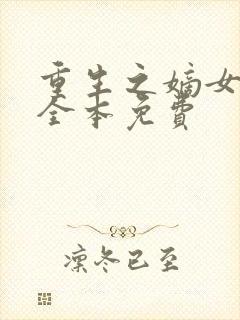 重生之嫡女
全本免費
凜冬已至